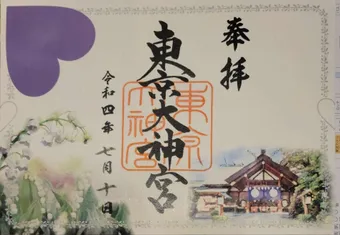 奉拝
東京大神宮
東京
大神宮
令和四年七月十日